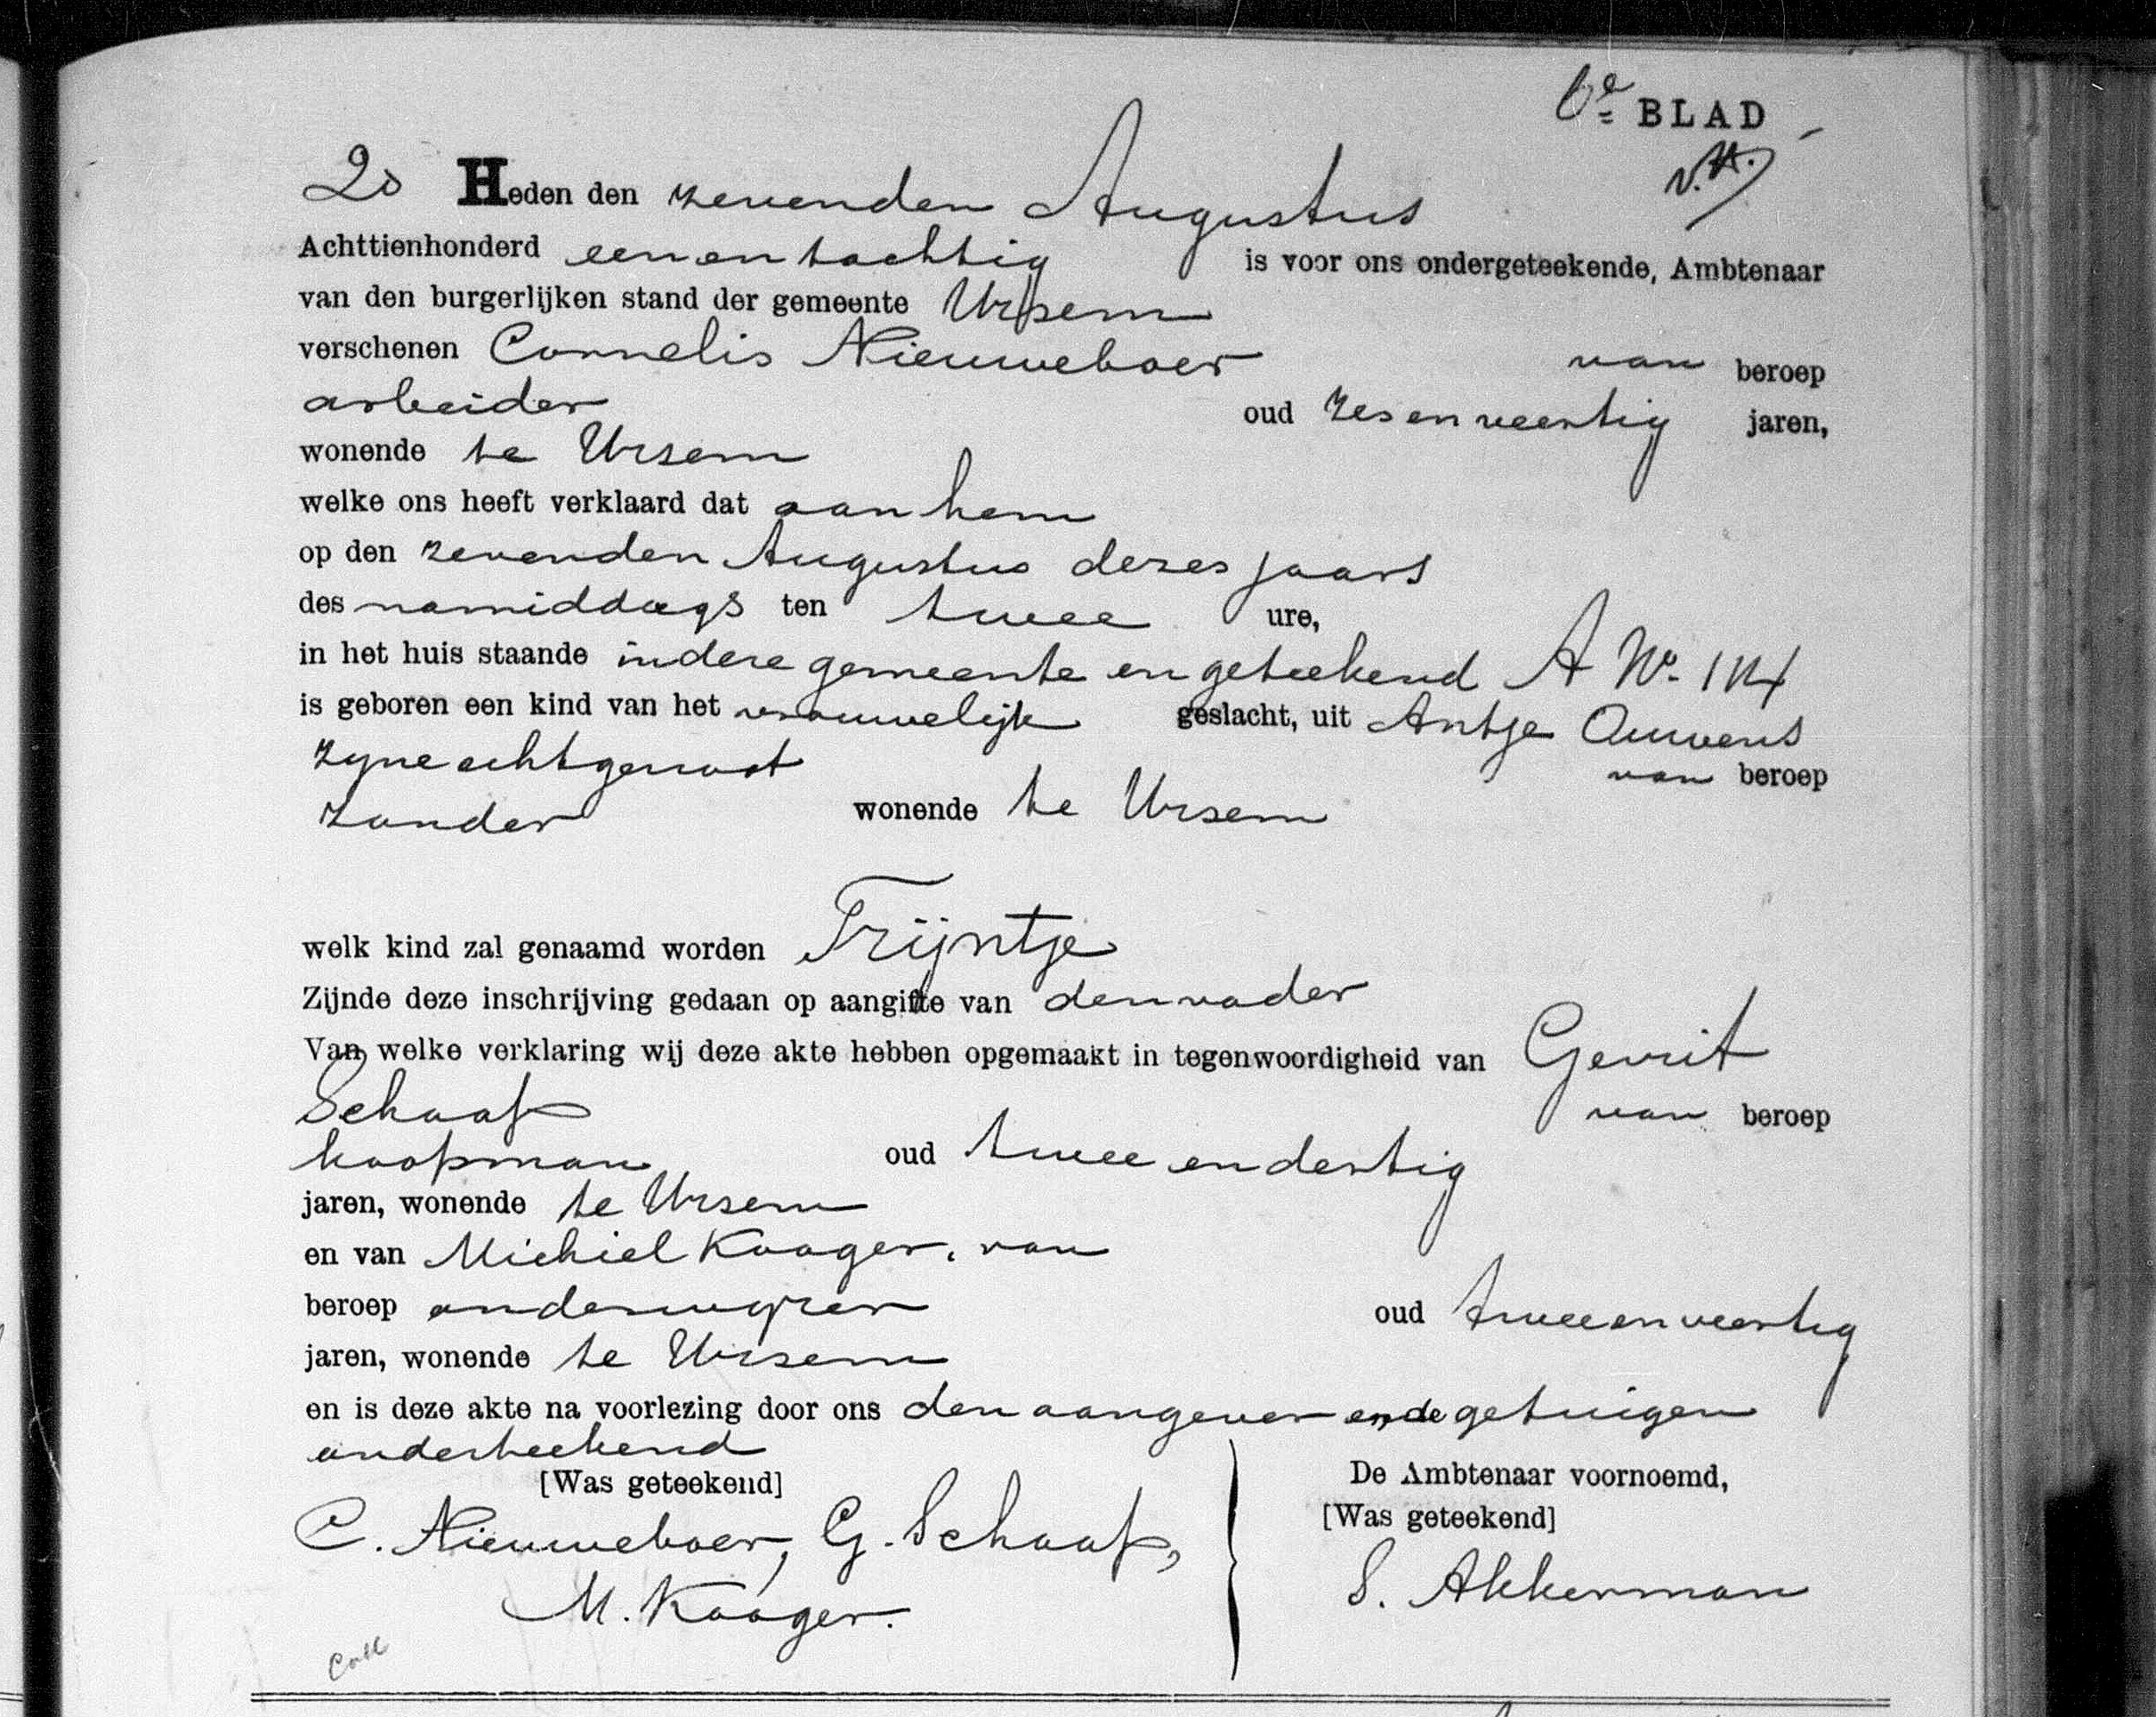 6e BLAD
20 Heden den zevenden Augustus
Achttienhonderd een en tachtig is voor ons ondergeteekende, Ambtenaar
van den burgerlijken stand der gemeente Ursem
verschenen Cornelis Nieuweboer van beroep
arbeider oud zes en veertig jaren,
wonende te Ursem
welke ons heeft verklaard dat aan hem
op den zevenden Augustus dezes jaars
des namiddags ten twee ure,
in het huis staande in deze gemeente en geteekend A No.
is geboren een kind van het vrouwelijk geslacht, uit Antje Ouwens
zyne echtgenoot van beroep
zonder wonende te Ursem
welk kind zal genaamd worden Trijntje
Zijnde deze inschrijving gedaan op aangifte van den vader
Van welke verklaring wij deze akte hebben opgemaakt in tegenwoordigheid van Gerrit
Schaap van beroep
koopman oud twee en dertig
jaren, wonende te Ursem
en van Michiel Kaager, van
beroep onderwyzer oud twee en veertig
jaren, wonende te Ursem
en is deze akte na voorlezing door ons den aangever en de getuigen
onderteekend
[Was geteekend] De Ambtenaar voornoemd,
C. Nieuweboer, G. Schaap, [Was geteekend]
M. Kaager. S. Akkerman